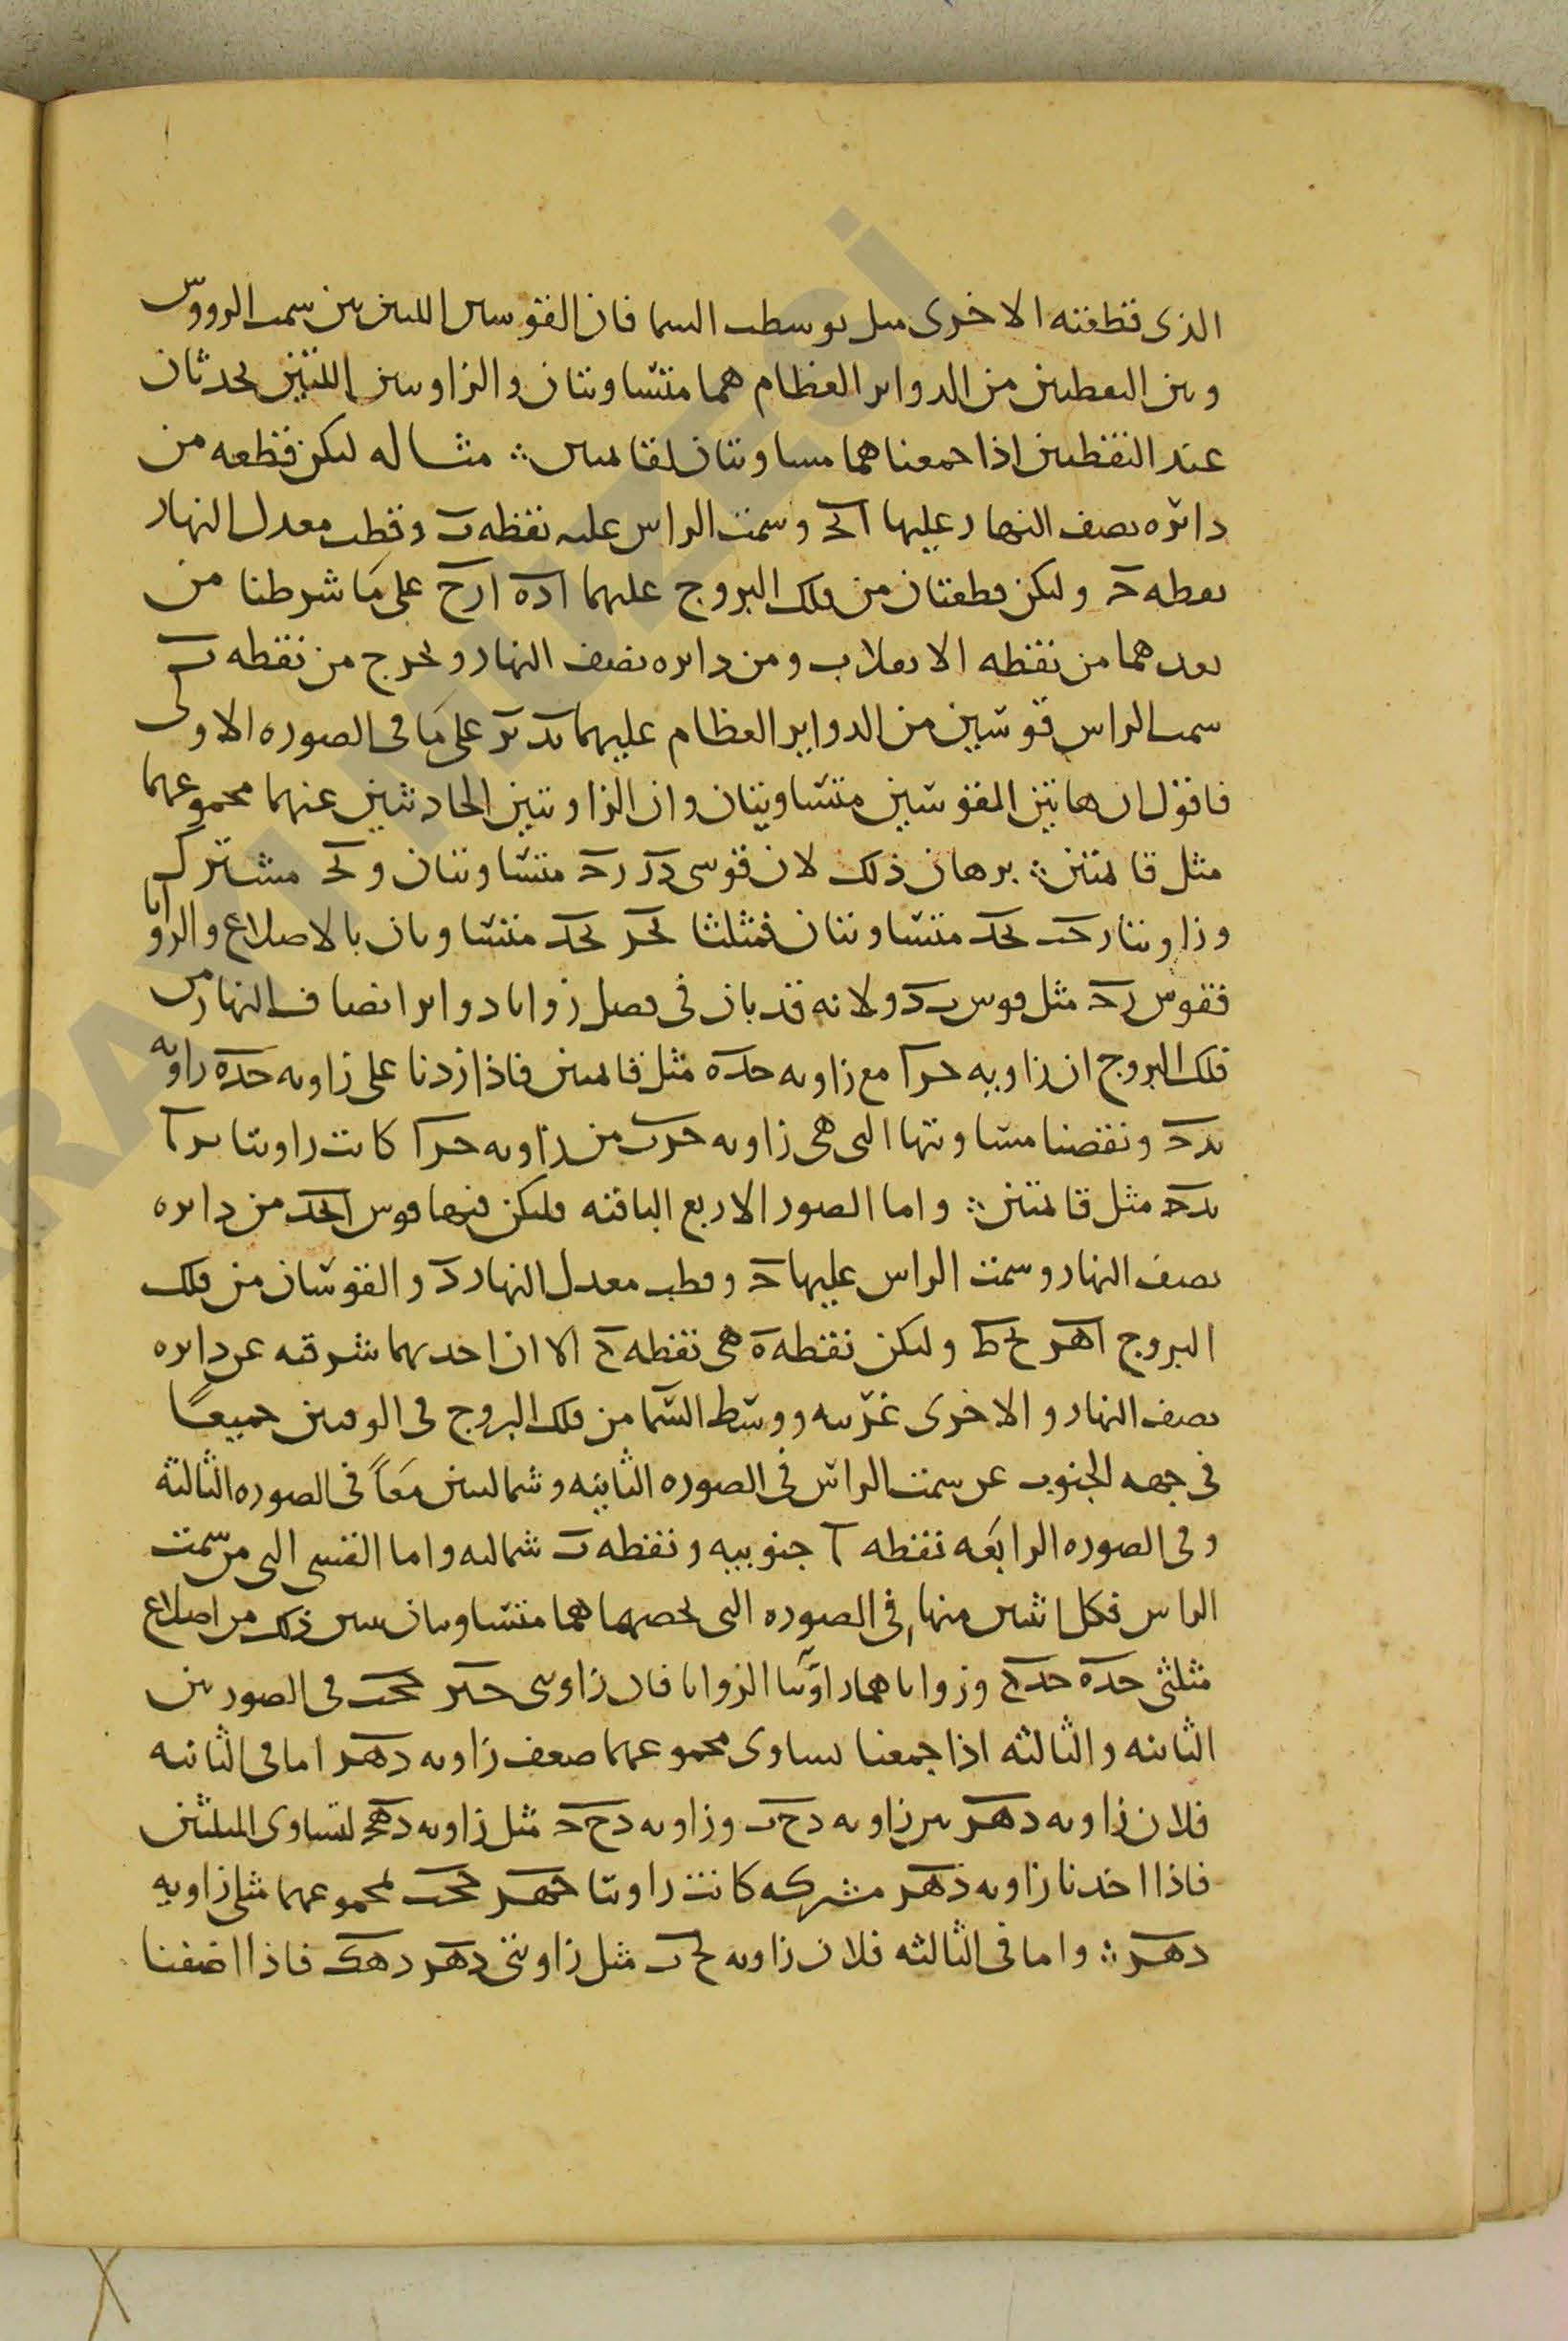 الذى قطعته الاخرى مىل ىوسطت السما فان القوسىں اللتىن بىن سمت الرووس
وبىن النقطتىن من الدواىر العظام هما متساوىتان والزاوىتىن اللتىن ىحدثان
عند النقطتىن اذا جمعنا هما مساوىتان لقاىمتىں ؞ مثاله لىكن قطعه من
داىره ىصف النهار علىها ابحـ وسمت الراس علىه نقطه ب وقطب معدل النهار
نقطه حـ ولىكن قطعتان من فلك البروج علىهما اده ارح على ما شرطنا من
بعدهما من نقطه الانقلاب ومن داىره نصف النهار وىخرج من نقطه ب
سمت الراس قوسىن من الدواىر العظام علىهما ىد ىر على ما فى الصوره الاولى
فاقول ان هاتىن القوسىن متساوىتان وان الزاوىتىن الحادثتىن عنهما مجموعهما
مثل قاىمتىن ؞ برهان ذلك لان قوسى دحـ رحـ متساوىتان وبحـ مشترك
وزاوىتا رحب بحد متساوىتان فمثلثا بحر بحد متساوىان بالاضلاع والزواىا
فقوس رب مثل قوس بد ولانه قد بان فى فصل زواىا دواىر انصاف النهار من
فلك البروج ان زاوىه حرا مع زاوىه حده مثل قاىمتىن فاذا زدنا على زاوىه حده زاوىه
بدحـ ونقصنا مساوىتها التى هى زاوىه حرب من زاوىه حرا كانت زاوىتا برا
بده مثل قاىمتىن ؞ واما الصور الاربع الباقىه فلىكن فىها قوس ابحد من داىره
نصف النهار وسمت الراس علىها حـ وقطب معدل النهار د والقوسان من فلك
البروج اهر بحط ولىكن نقطه ه هى نقطه ح الا ان احدىهما شرقىه عن داىره
نصف النهار والاخرى غربىه ووسط السما من فلك البروج فى الوقتىن جمىعًا
فى جهه الجنوب عن سمت الراس فى الصوره الثانىه وشمالىىن معًا فى الصوره الثالثه
وفى الصوره الرابعه نقطه ا جنوبىه ونقطه ب شمالىه واما القسى التى من سمت
الراس فكل اثنىن منها فى الصوره التى ىخصهما هما متساوىان ىىىن ذلك من اضلاع
مثلثى حده حدح وزواىاهما واما الزواىا فان زاوىتى حهر ححب فى الصورتىن
الثانىه والثالثه اذا جمعنا ىساوى مجموعهما ضعف زاوىه دهر اما فى الثانىه
فلان زاوىه دهر مىل زاوىه دحب وزاوىه دححـ مثل زاوىه دهحـ لتساوى المثلثىن
فاذا اخذنا زاوىه دهر مشتركه كانت زاوىتا حهر ححب مجموعهما مثلى زاوىه
دهر ؞ واما فى الثالثه فلان زاوىه ححب مثل زاوىتى دهر دهك فاذا اضفنا